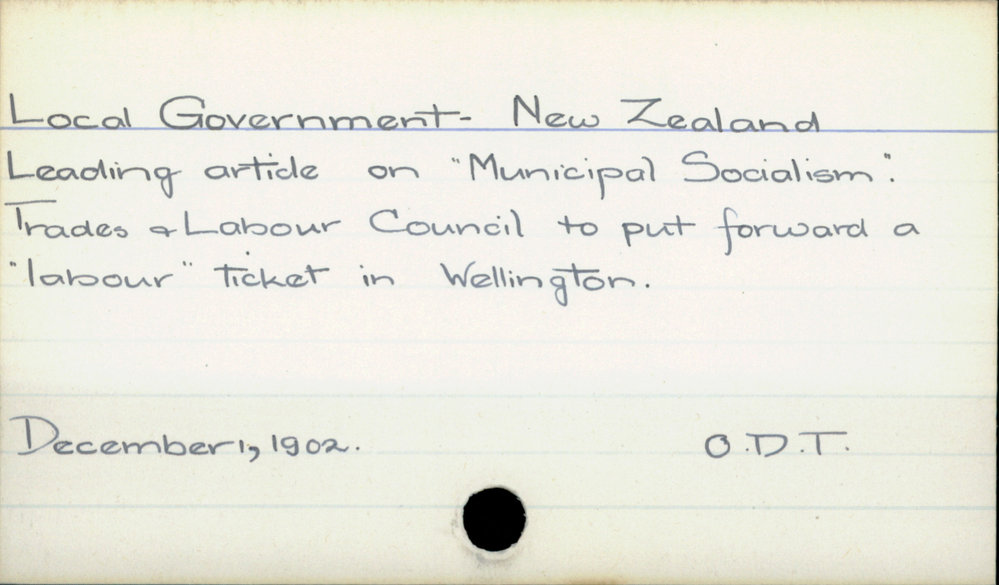 Local Government - New Zealand
Leading article on "Municipal Socialism".
Trades & Labour Council to put forward a
"labour" ticket in Wellington.
December 1, 1902.
O.D.T.